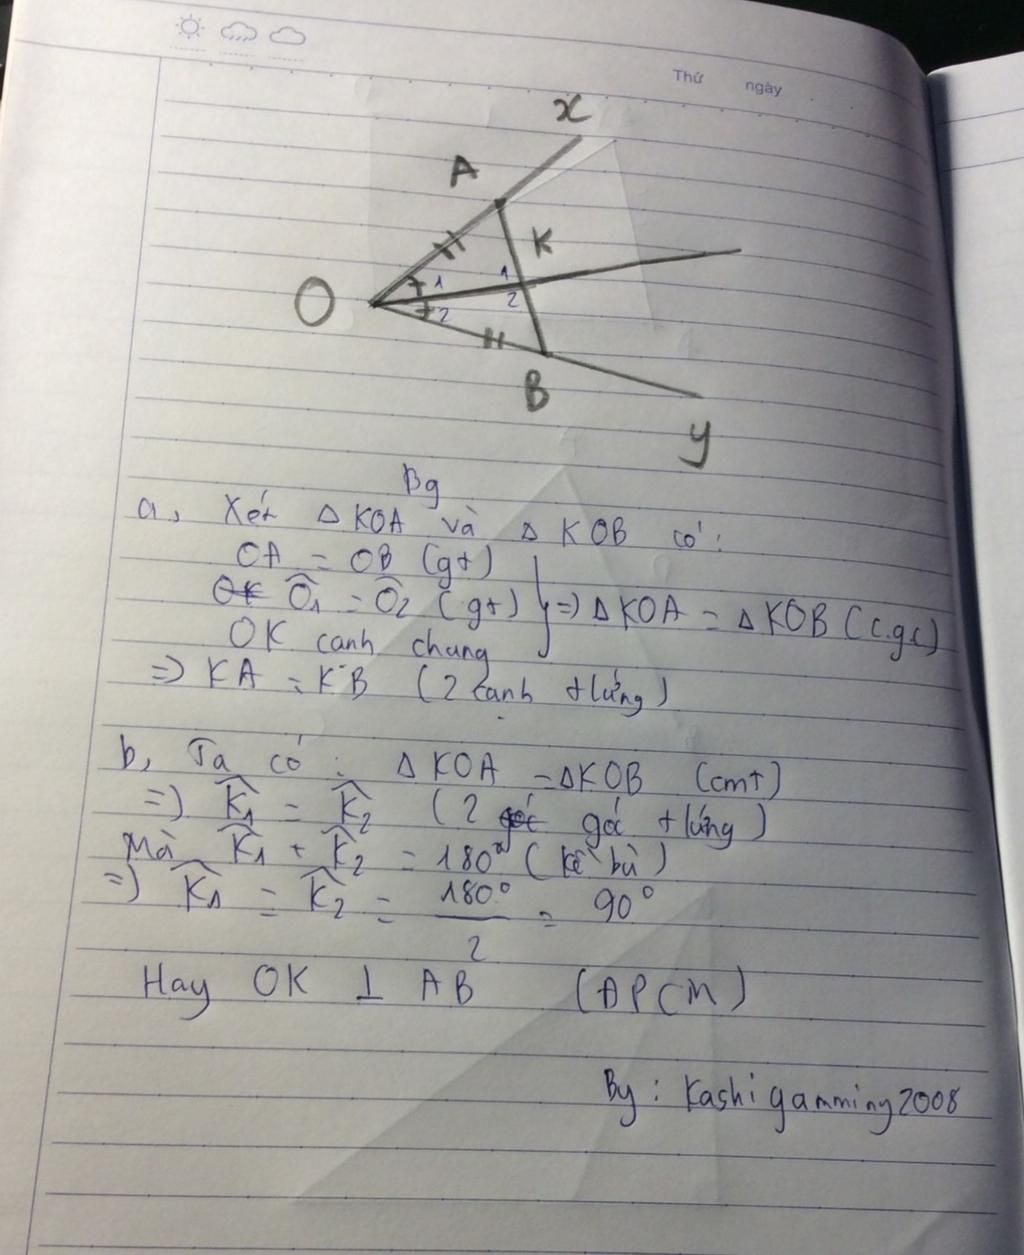 Thứ ngày
x
A
K
1 1
O
2 2
B
y
Bg
a, Xét Δ KOA và Δ KOB có:
OA = OB (gt)
Ô1 = Ô2 (gt) } => Δ KOA = Δ KOB (c.g.c)
OK canh chung
=> KA = KB (2 canh tứng)
b, Ta có : Δ KOA = Δ KOB (cmt)
=> K̂1 = K̂2 (2 góc tứng)
Mà K̂1 + K̂2 = 180° (kề bù)
=> K̂1 = K̂2 = 180°/2 = 90°
Hay OK ⊥ AB (ĐPCM)
By : Kashi gamming 2008